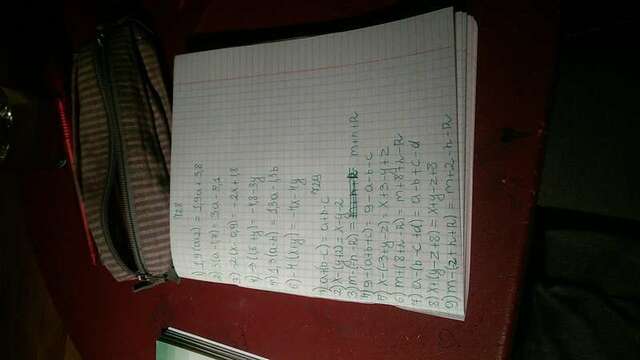 728
1) 1,9(a+2) = 1,9a + 3,8
2) 3(a-1,7) = 3a - 5,1
3) -2(x-0,9) = -2x + 1,8
= -4,8-3y
5) 1,3(a-b) = 1,3a - 1,3b
6) -4(x+y) = -4x - 4y
729
1) a+(b-c) = a+b-c
2) x-(y+2) = x-y-2
3) m-(-n-R) = m+n+R
4) 9-(a+b+c) = 9-a-b-c
5) x-(-3+y-z) = x+3-y+z
6) m+(8+n-R) = m+8+n-R
7) a-(b-c+d) = a-b+c-d
8) x+(y-z+8) = x+y-z+8
9) m-(2+n+R) = m+2-n-R